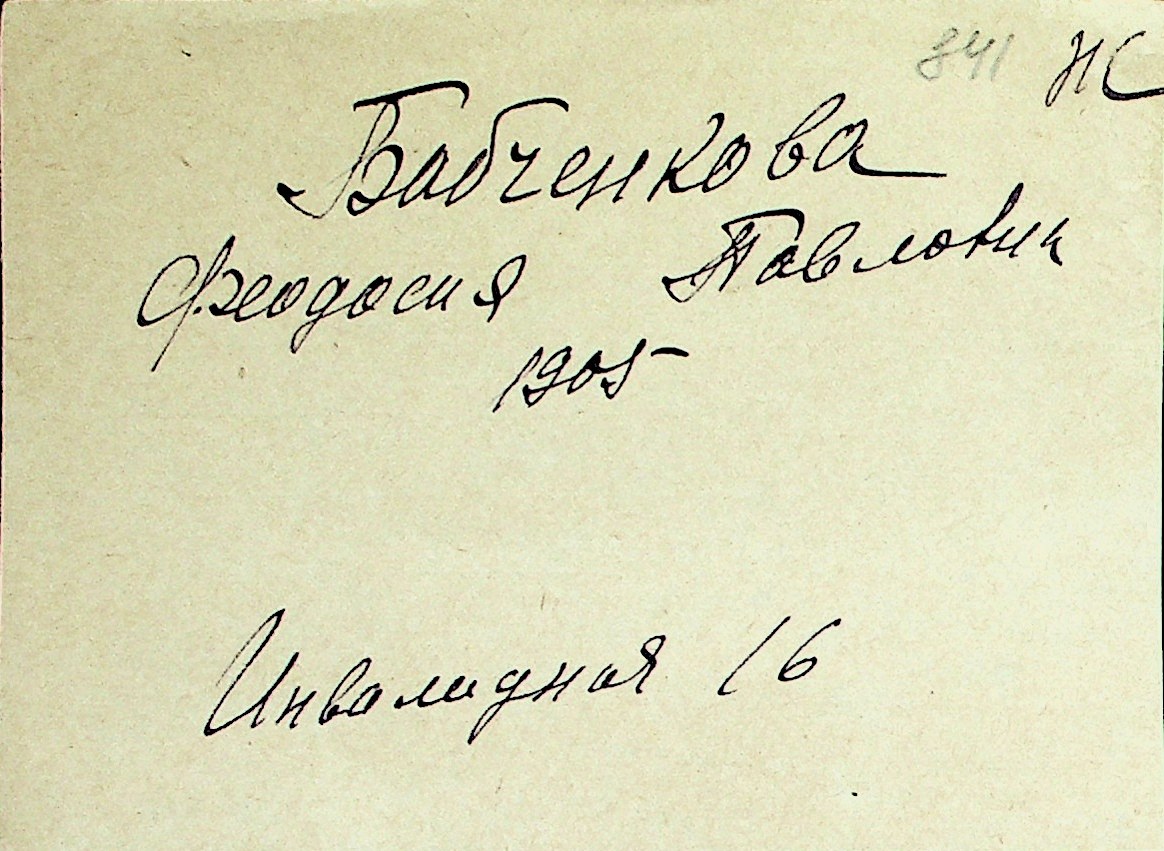 841 НС
Бабченкова
Феодосия Павловн
1905
Инвалидная 16